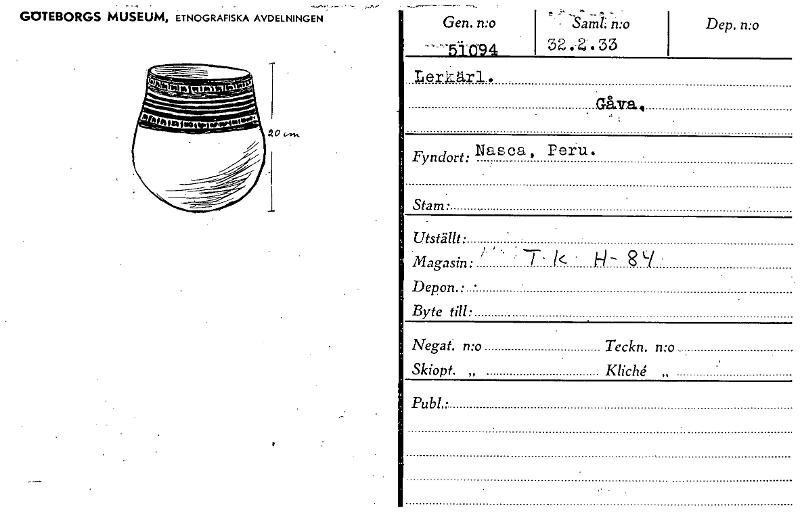 GÖTEBORGS MUSEUM, ETNOGRAFISKA AVDELNINGEN
20 cm
Gen. n:o Saml. n:o Dep. n:o
51094 32.2.33
Lerkärl.
Gåva.
Fyndort: Nasca, Peru.
Stam:
Utställt:
Magasin: T.K H-84
Depon.:
Byte till:
Negat. n:o Teckn. n:o
Skiopt. „ Kliché „
Publ.: